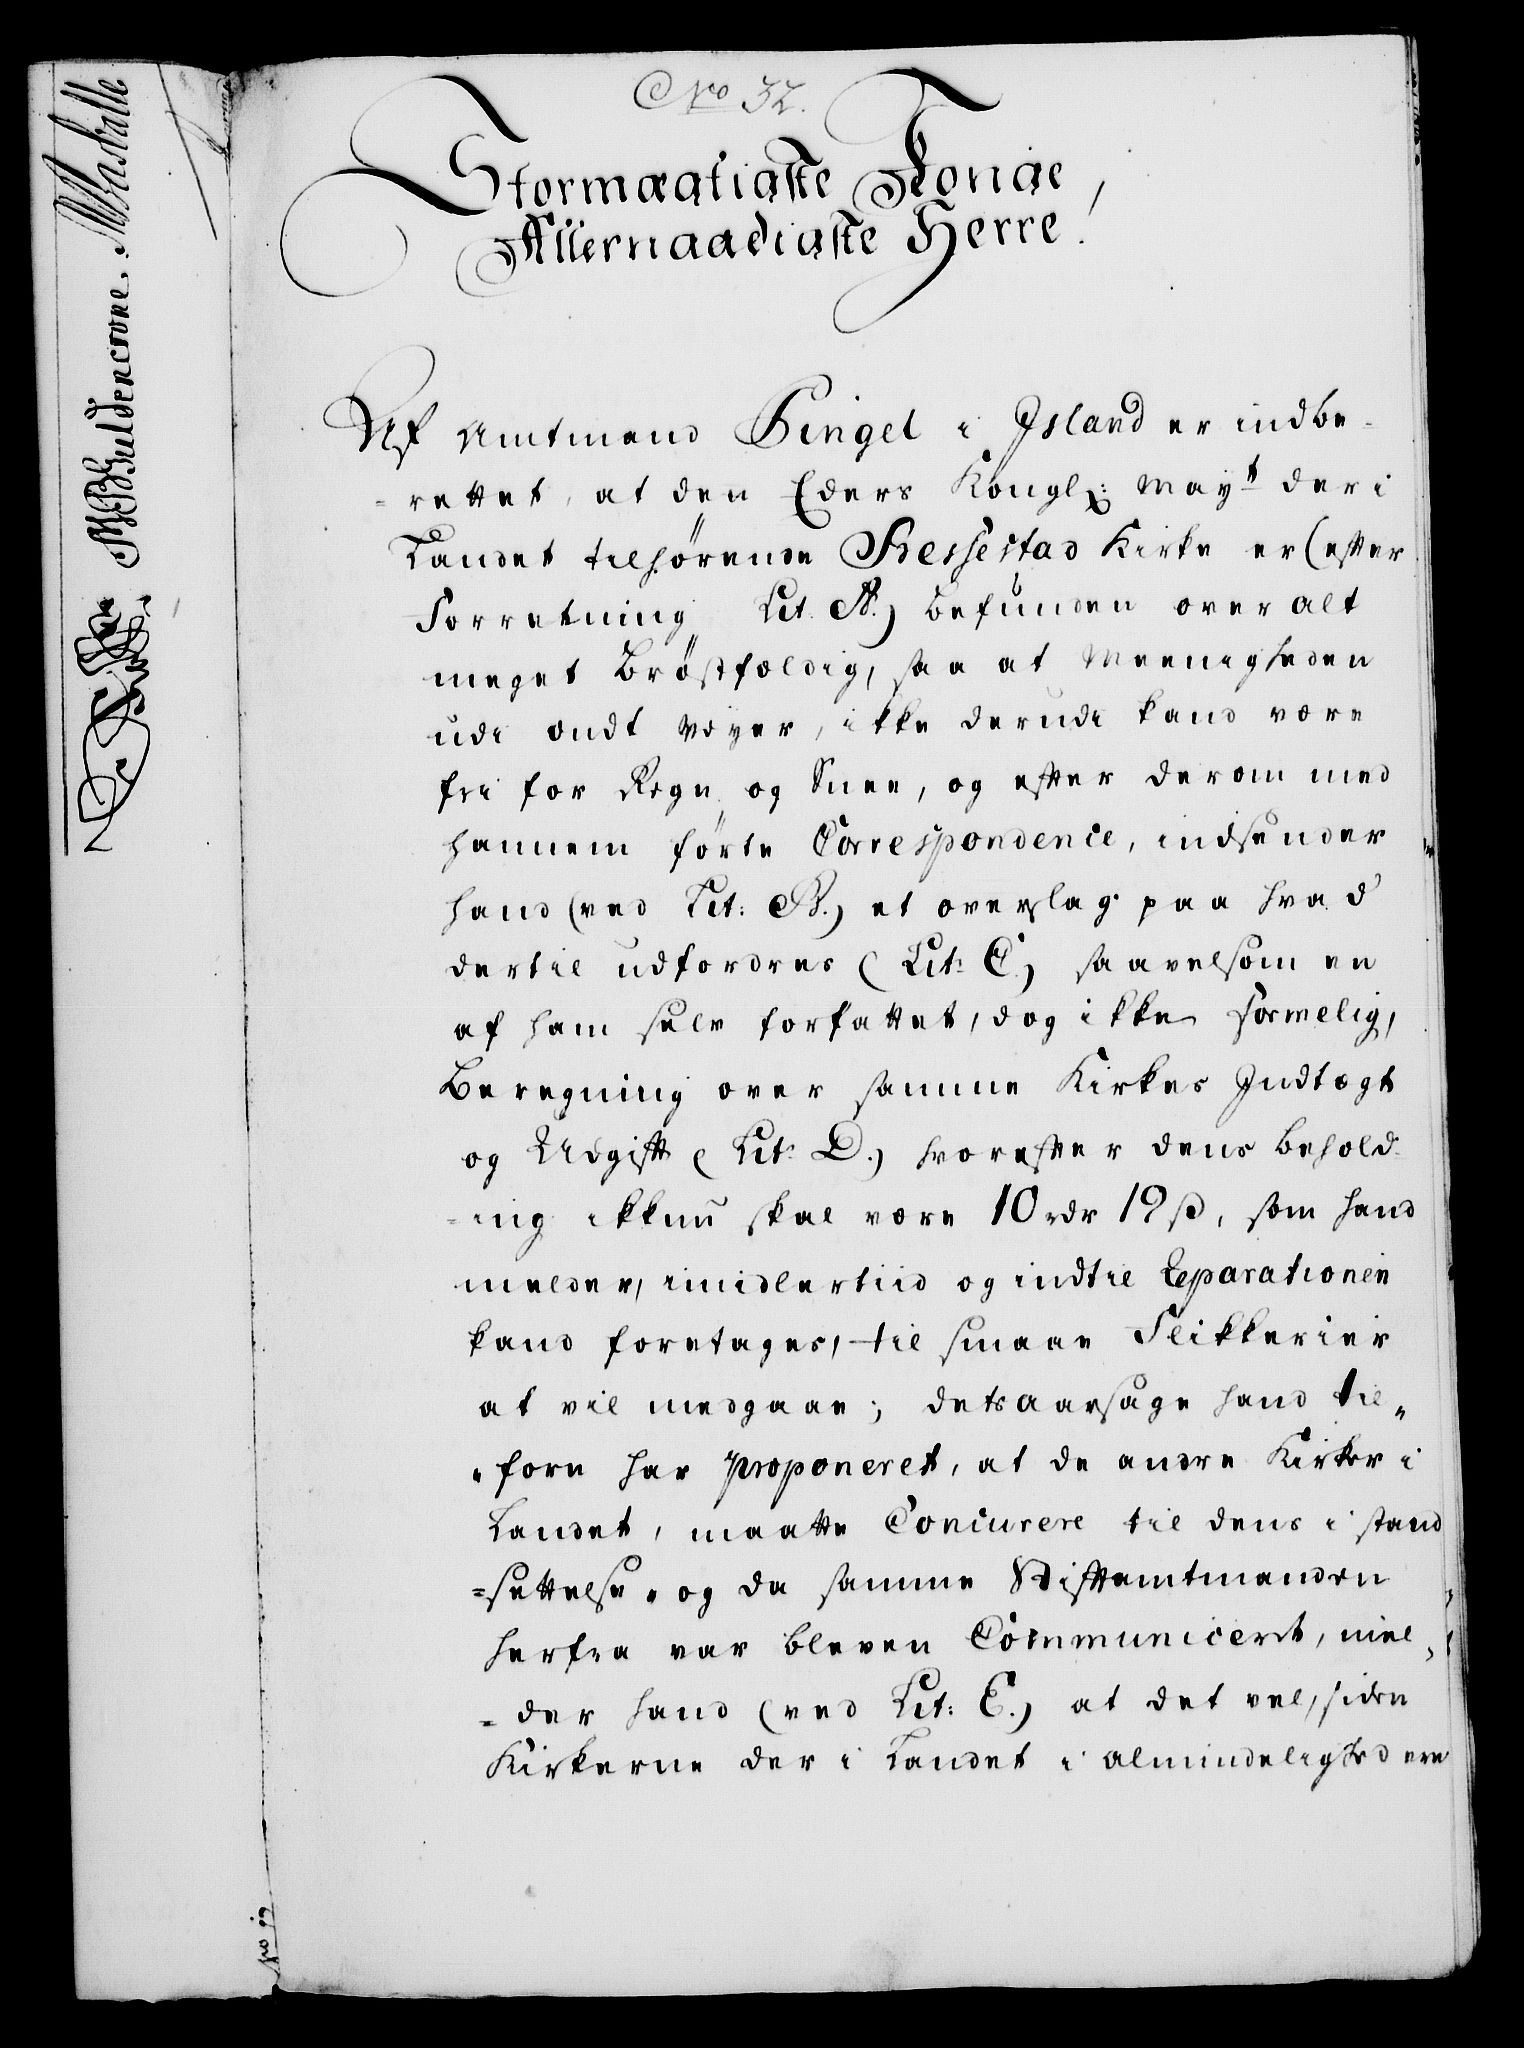 No 32.
Stormægtigste Konge,
Allernaadigste Herre!
Af Amtmand Pingel i Island er indbe-
-rettet, at den Eders Kongl: May:t der i
Landet tilhørende Bessestad Kirke er (efter
Forretning Lit. A.) befunden over alt
meget Brøstfældig, saa at Meenigheden
udi ondt Veyer, ikke derudi kand være
fri for Regn og Snee, og efter derom med
hannem førte Correspondence, indsender
hand (ved Lit: B.) et overslag paa hvad
dertil udfordres (Lit: C.) saavelsom en
af ham selv forfattet, dog ikke formelig,
Beregning over samme Kirkes Indtægt
og Udgift (Lit: D.) hvorefter dens behold-
-ing ikkun skal være 10 rdr 19 ß, som hand
melder, imidlertiid og indtil Reparationen
kand foretages, til smaae Flikkerier
at vil medgaae; dets aarsage hand til-
-forn har proponeret, at de andre Kirker i
Landet, maatte Concurere til dens i stand
-settelse. og da samme Stiftamtmanden
herfra var bleven Communiceret, mel-
-der hand (ved Lit: E.) at det vel, siden
Kirkerne der i Landet i almindelighed ere
Guldencrone.